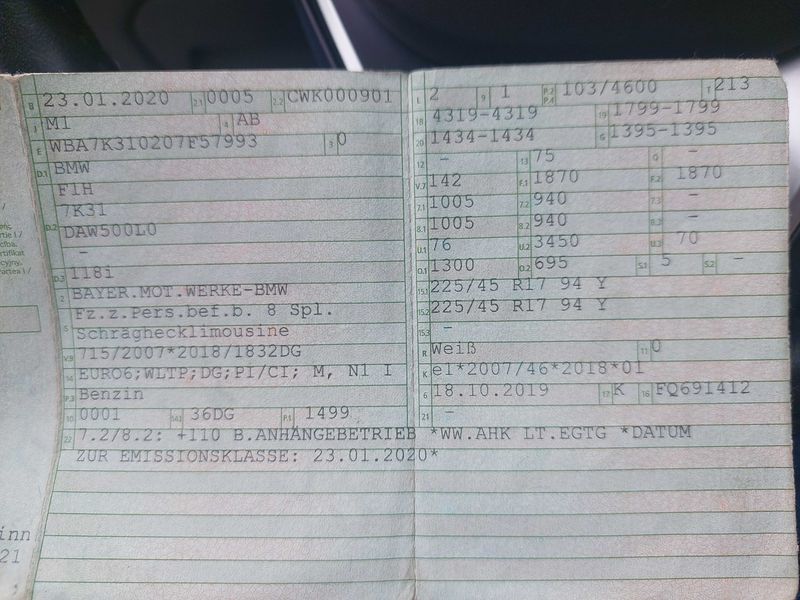 B 23.01.2020 2.1 0005 2.2 CWK000901
J M1 4 AB
E WBA7K310207F57993 3 0
D.1 BMW
F1H
7K31
D.2 DAW500L0
-
D.3 118i
2 BAYER.MOT.WERKE-BMW
Fz.z.Pers.bef.b. 8 Spl.
5 Schräghecklimousine
V.9 715/2007*2018/1832DG
14 EURO6;WLTP;DG;PI/CI; M, N1 I
P.3 Benzin
10 0001 14.1 36DG P.1 1499
L 2 9 1 P.2 P.4 103/4600 T 213
18 4319-4319 19 1799-1799
20 1434-1434 G 1395-1395
12 - 13 75 Q -
V.7 142 F.1 1870 F.2 1870
7.1 1005 7.2 940 7.3 -
8.1 1005 8.2 940 8.3 -
U.1 76 U.2 3450 U.3 70
O.1 1300 O.2 695 S.1 5 S.2 -
15.1 225/45 R17 94 Y
15.2 225/45 R17 94 Y
15.3 -
R Weiß 11 0
K e1*2007/46*2018*01
6 18.10.2019 17 K 16 FQ691412
21 -
22 7.2/8.2: +110 B.ANHÄNGEBETRIEB *WW.AHK LT.EGTG *DATUM
ZUR EMISSIONSKLASSE: 23.01.2020*
inn
21